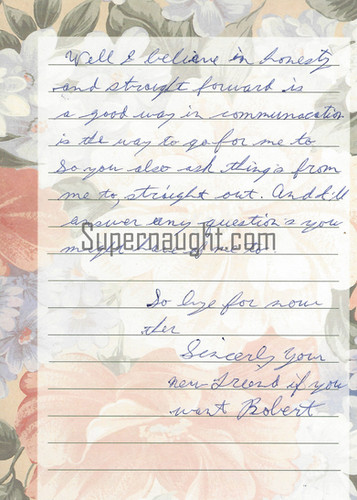 Well I believe in honesty
and straight forward is
a good way in communacation
is the way to go for me to
So you also ask thing's from
me to straight out. And I'll
answer any question's you
might have of me to
Supernaught.com
So bye for now
ther
Sincerly Your
new friend if you
want Robert